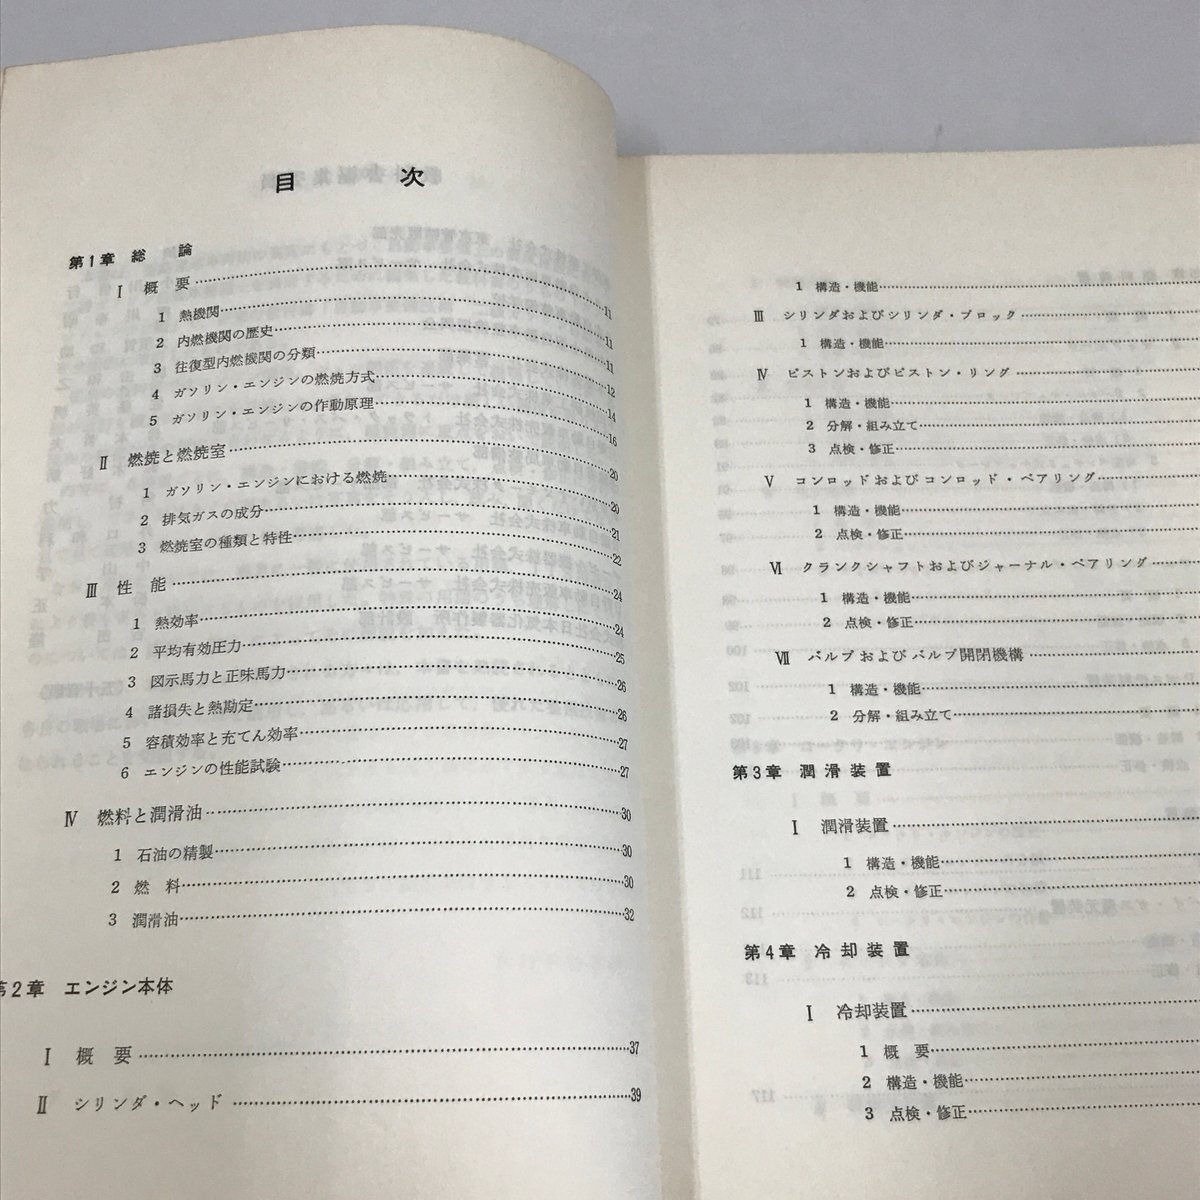 目 次
第1章 総 論
Ⅰ 概 要……11
1 熱機関……11
2 内燃機関の歴史……11
3 往復型内燃機関の分類……12
4 ガソリン・エンジンの燃焼方式……14
5 ガソリン・エンジンの作動原理……16
Ⅱ 燃焼と燃焼室……20
1 ガソリン・エンジンにおける燃焼……20
2 排気ガスの成分……21
3 燃焼室の種類と特性……22
Ⅲ 性 能……24
1 熱効率……24
2 平均有効圧力……25
3 図示馬力と正味馬力……26
4 諸損失と熱勘定……26
5 容積効率と充てん効率……27
6 エンジンの性能試験……27
Ⅳ 燃料と潤滑油……30
1 石油の精製……30
2 燃 料……30
3 潤滑油……32
第2章 エンジン本体
Ⅰ 概 要……37
Ⅱ シリンダ・ヘッド……39
1 構造・機能……
Ⅲ シリンダおよびシリンダ・ブロック……
1 構造・機能……
Ⅳ ピストンおよびピストン・リング……
1 構造・機能……
2 分解・組み立て……
3 点検・修正……
Ⅴ コンロッドおよびコンロッド・ベアリング……
1 構造・機能……
2 点検・修正……
Ⅵ クランクシャフトおよびジャーナル・ベアリング……
1 構造・機能……
2 点検・修正……
Ⅶ バルブおよびバルブ開閉機構……
1 構造・機能……
2 分解・組み立て……
第3章 潤滑装置
Ⅰ 潤滑装置……
1 構造・機能……
2 点検・修正……
第4章 冷却装置
Ⅰ 冷却装置……
1 概 要……
2 構造・機能……
3 点検・修正……